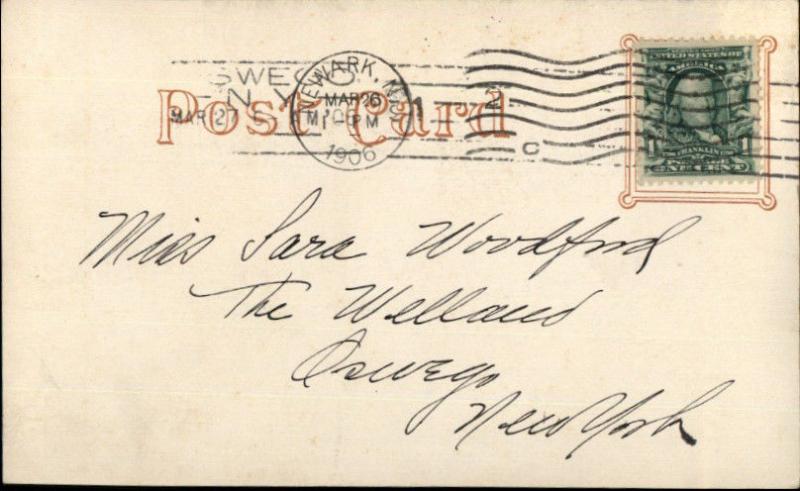 OSWEGO
N.Y.
MAR 27
NEWARK, N.J.
MAR 26
PM
1906
C
Post Card
UNITED STATES OF
AMERICA
FRANKLIN
1 1
ONE CENT
Miss Sara Woodford
The Welland
Oswego
New York